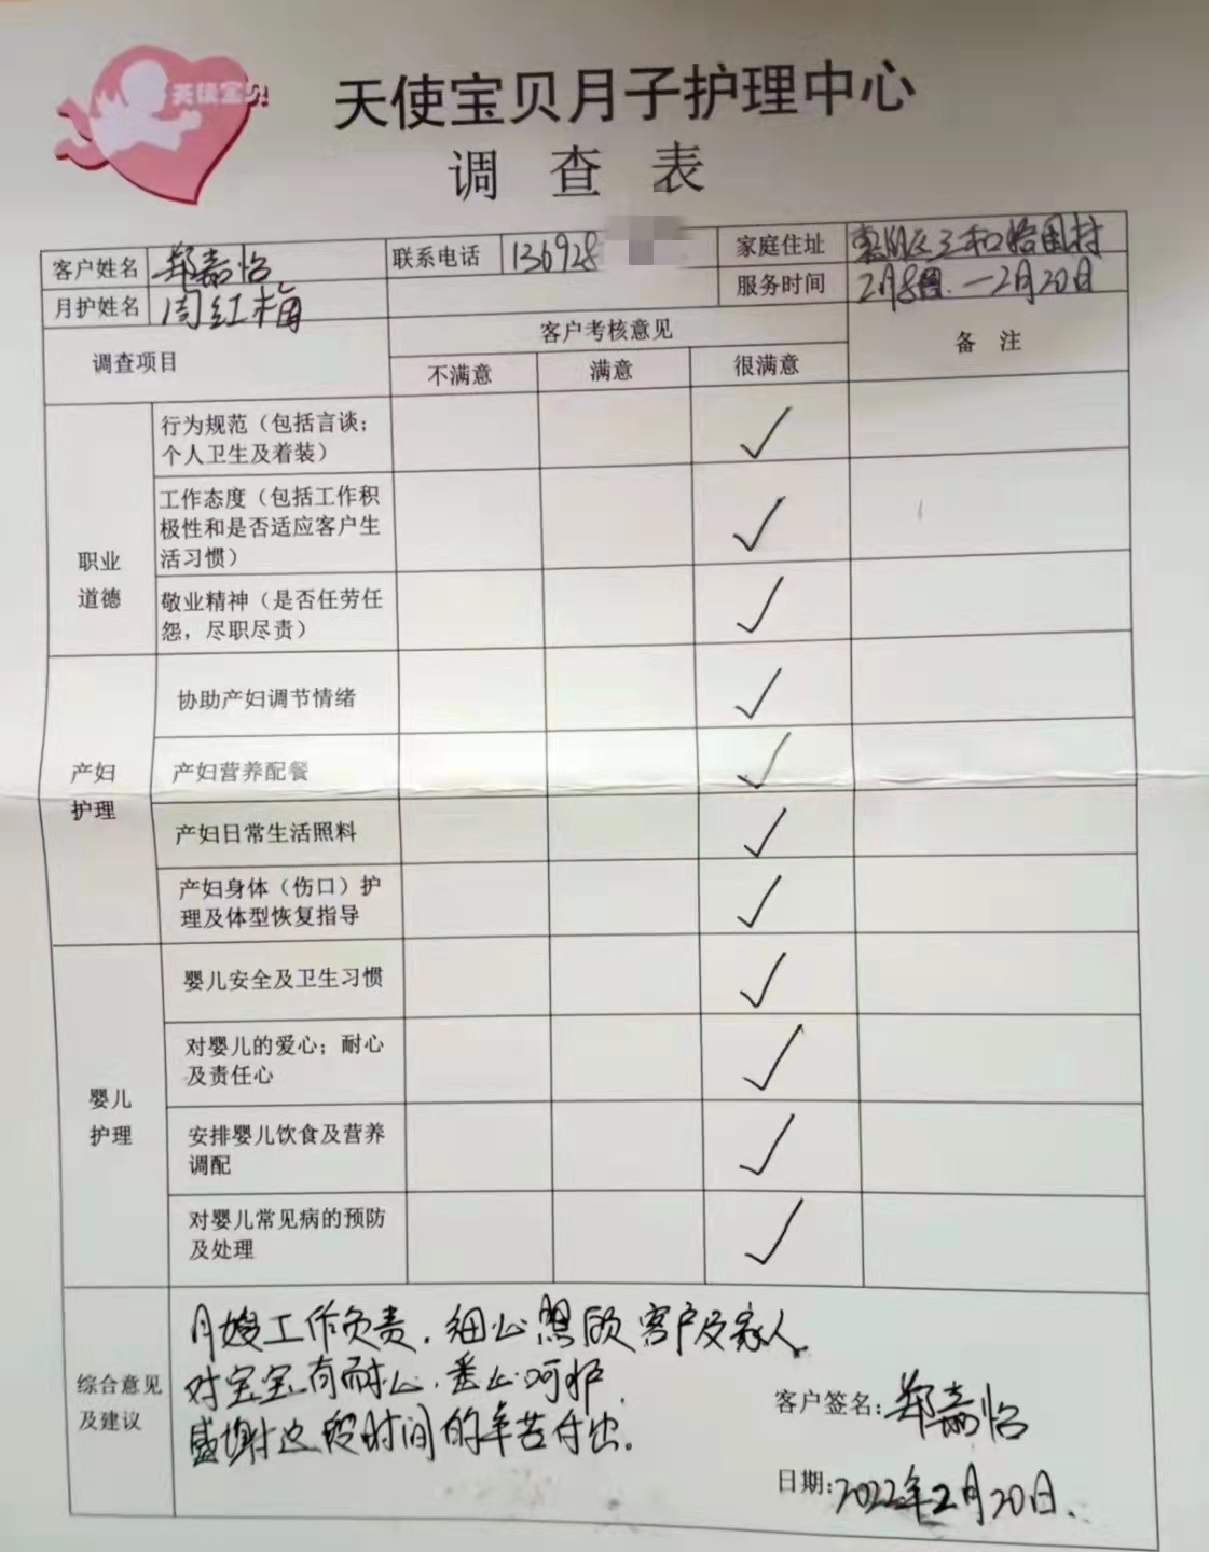 天使宝贝
天使宝贝月子护理中心
调 查 表
客户姓名 郑嘉怡 联系电话 136928 家庭住址 惠阳区三和怡园村
月护姓名 周红梅 服务时间 2月8日.—2月20日
调查项目 客户考核意见 备 注
不满意 满意 很满意
职业
道德
行为规范（包括言谈；
个人卫生及着装） ✓
工作态度（包括工作积
极性和是否适应客户生
活习惯） ✓
敬业精神（是否任劳任
怨，尽职尽责） ✓
产妇
护理
协助产妇调节情绪 ✓
产妇营养配餐 ✓
产妇日常生活照料 ✓
产妇身体（伤口）护
理及体型恢复指导 ✓
婴儿
护理
婴儿安全及卫生习惯 ✓
对婴儿的爱心；耐心
及责任心 ✓
安排婴儿饮食及营养
调配 ✓
对婴儿常见病的预防
及处理 ✓
综合意见
及建议
月嫂工作负责，细心照顾客户及家人，
对宝宝有耐心，悉心呵护，
感谢这段时间的辛苦付出。
客户签名：郑嘉怡
日期：2022年2月20日.